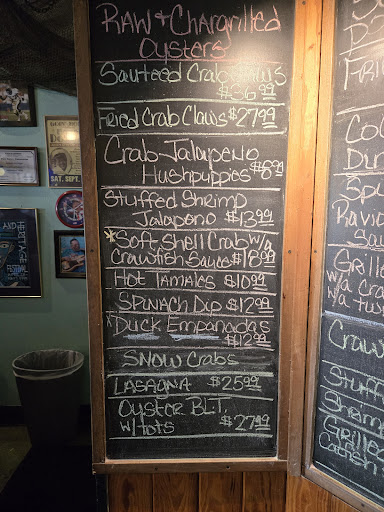 RAW + Chargrilled
Oysters
Sauteed Crab Claws
$36.99
Fried Crab Claws $27.99
Crab Jalapeno
Hushpuppies $8.99
Stuffed Shrimp
Jalapeno $13.99
*Soft Shell Crab w/a
Crawfish Sauce $18.99
Hot Tamales $10.99
Spinach Dip $12.99
*Duck Empanadas
$12.99
Snow Crabs
Lasagna $25.99
Oyster BLT
w/tots $27.99
SAT. SEPT.
AND HERITAGE
FESTIVAL
Sauc
Grille
w/a cra
w/a tw
Craw
Stuff
Shrim
Grilled